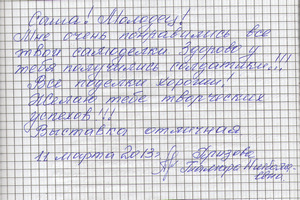 Саша! Молодец!
Мне очень понравились все
твои самоделки Здорово у
тебя получились солдатики!!!
Все поделки хороши!
Желаю тебе творческих
успехов!!!
Выставка отличная
11 марта 2013г